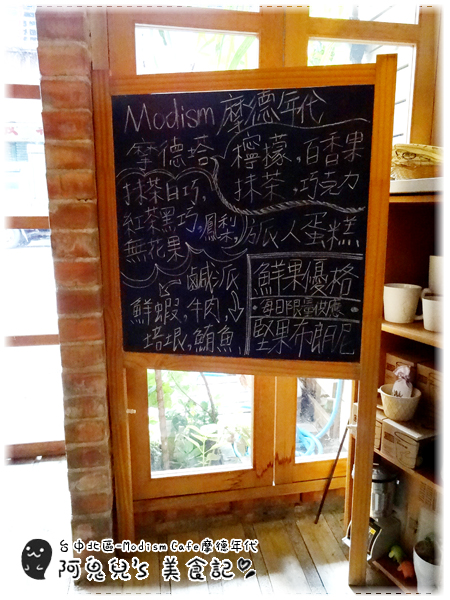 Modism 摩德年代
摩德塔 檸檬,百香果
抹茶白巧, 抹茶,巧克力
紅茶黑巧,鳳梨, 旅人蛋糕
無花果
鹹派
鮮蝦,牛肉,
培根,鮪魚
鮮果優格
·每日限量供應·
堅果布朗尼
台中北區-Modism Cafe摩德年代
阿兔兒's 美食記